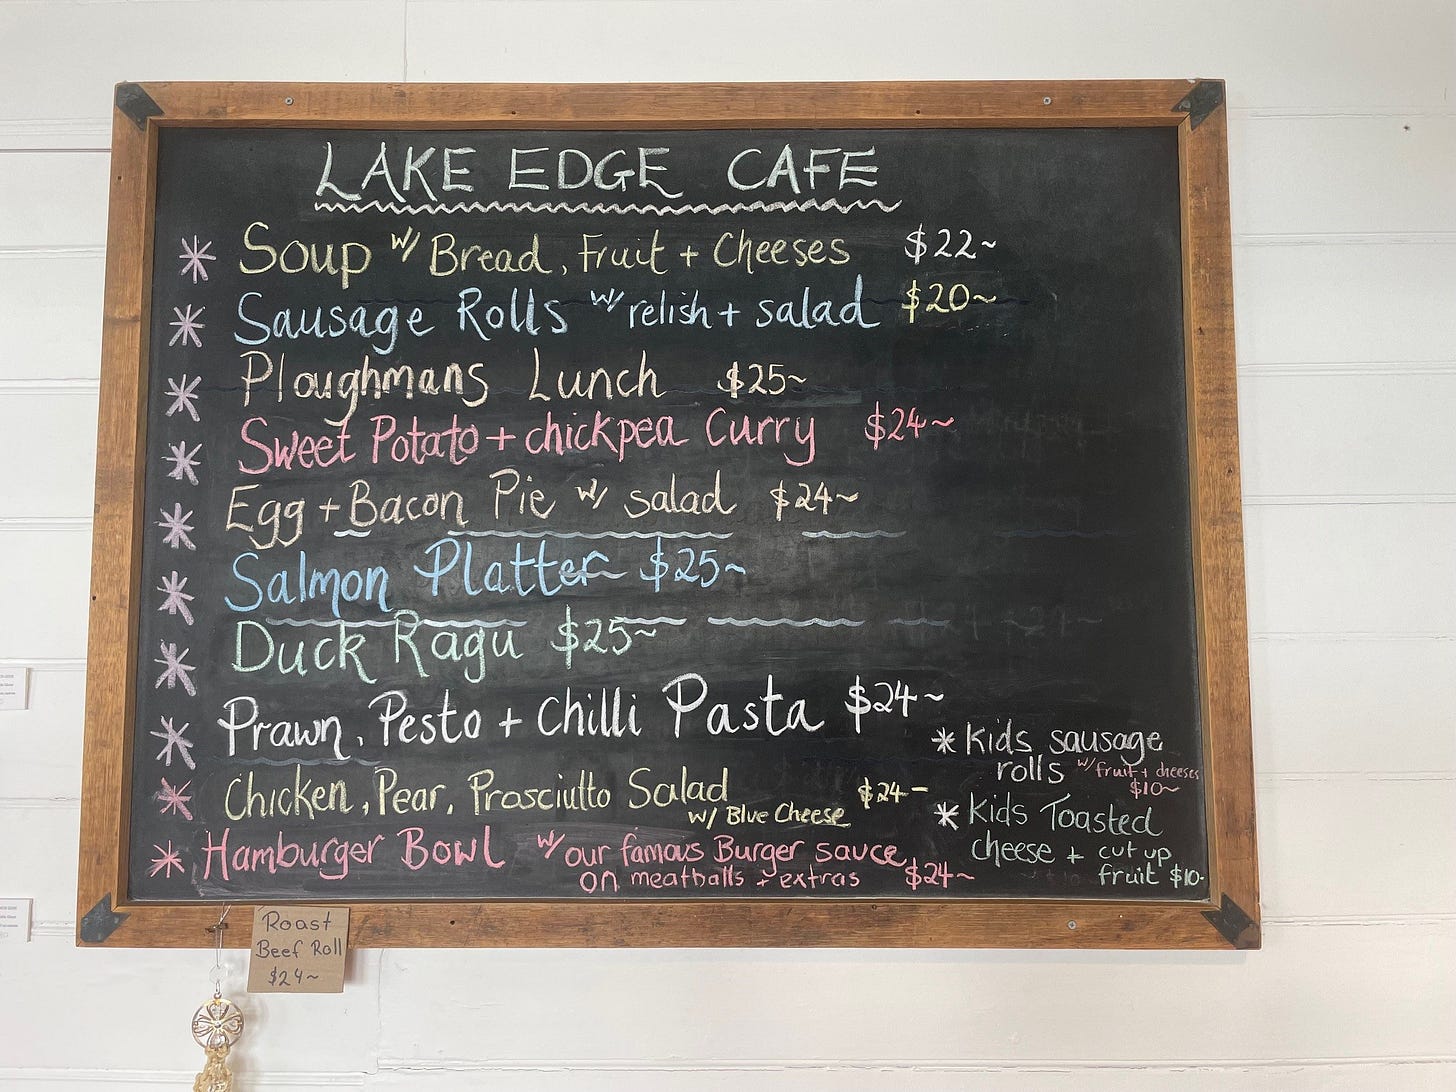 LAKE EDGE CAFE
* Soup w/ Bread, Fruit + Cheeses $22~
* Sausage Rolls w/ relish + salad $20~
* Ploughmans Lunch $25~
* Sweet Potato + chickpea Curry $24~
* Egg + Bacon Pie w/ salad $24~
* Salmon Platter $25~
* Duck Ragu $25~
* Prawn, Pesto + Chilli Pasta $24~
* Chicken, Pear, Prosciutto Salad $24-
w/ Blue Cheese
* Hamburger Bowl w/ our famous Burger sauce
on meatballs + extras $24~
* Kids sausage
rolls w/ fruit + cheeses
$10~
* Kids Toasted
cheese + cut up
fruit $10-
Roast
Beef Roll
$24~